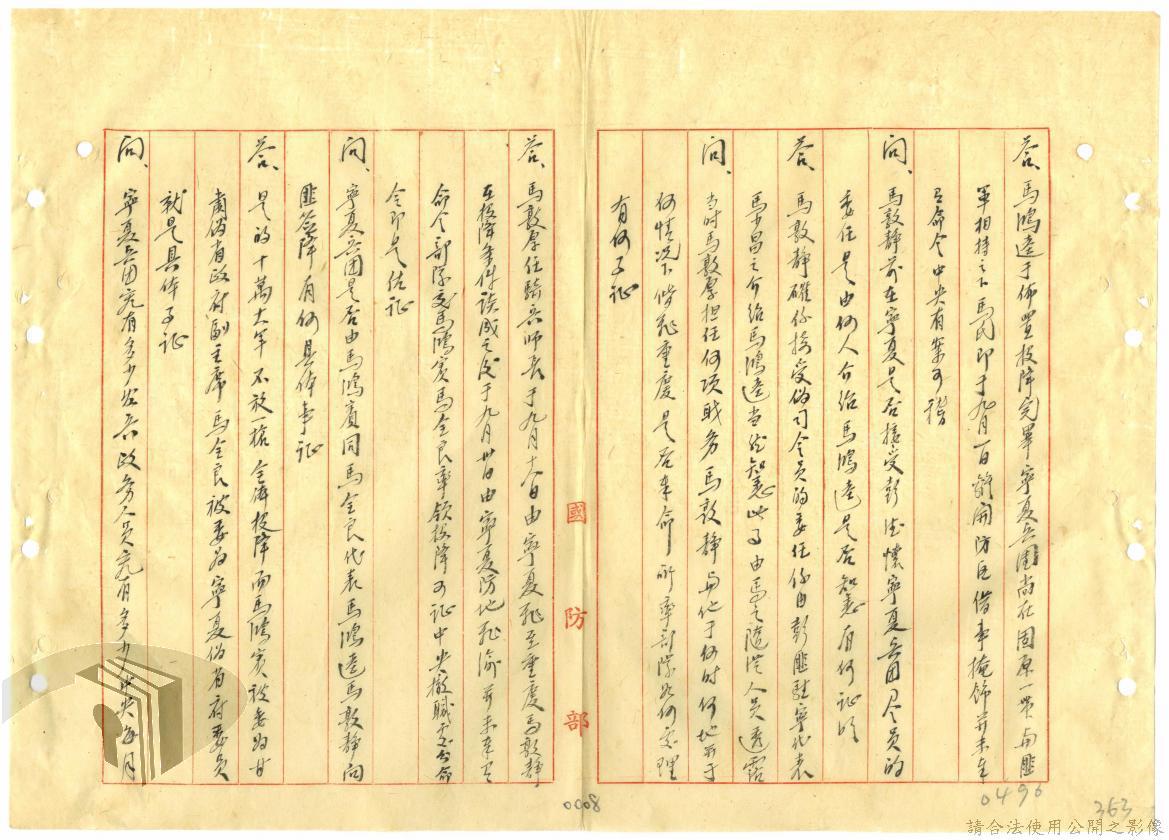 答、馬鴻逵于佈置投降完畢寧夏兵團尚在固原一帶与匪
軍相持之下馬氏即于九月一日離開防區借事掩飾并未奉
召命令中央有案可稽
問、馬敦靜前在寧夏是否接受彭德懷寧夏兵团司令员的
委任是由何人介绍馬鴻逵是否知悉有何证明
答、馬敦靜確係接受偽司令员的委任係由彭匪駐寧代表
馬少昌之介绍馬鴻逵当然知悉此事由馬之隨從人员透露
問、当时馬敦厚担任何項職务馬敦靜与他于何时何地并于
何情况下偕飛重慶是否奉命所率部隊如何处理
有何事证
國防部
答、馬敦厚任騎兵师長于九月十八日由寧夏飛至重慶馬敦靜
在投降条件談成之后于九月廿日由寧夏防地飛渝并未奉召
命令部隊交馬鴻賓馬全良率領投降可证中央撤職查办命
令即是佐证
問、寧夏兵团是否由馬鴻賓同馬全良代表馬鴻逵馬敦靜向
匪签降有何具体事证
答、是的十萬大軍不放一槍全体投降而馬鴻賓被委为甘
肅偽省政府副主席馬全良被委为寧夏偽省府委员
就是具体事证
問、寧夏兵团究有多少官兵政务人员究有多少中央每月
0008
0496
363
請合法使用公開之影像